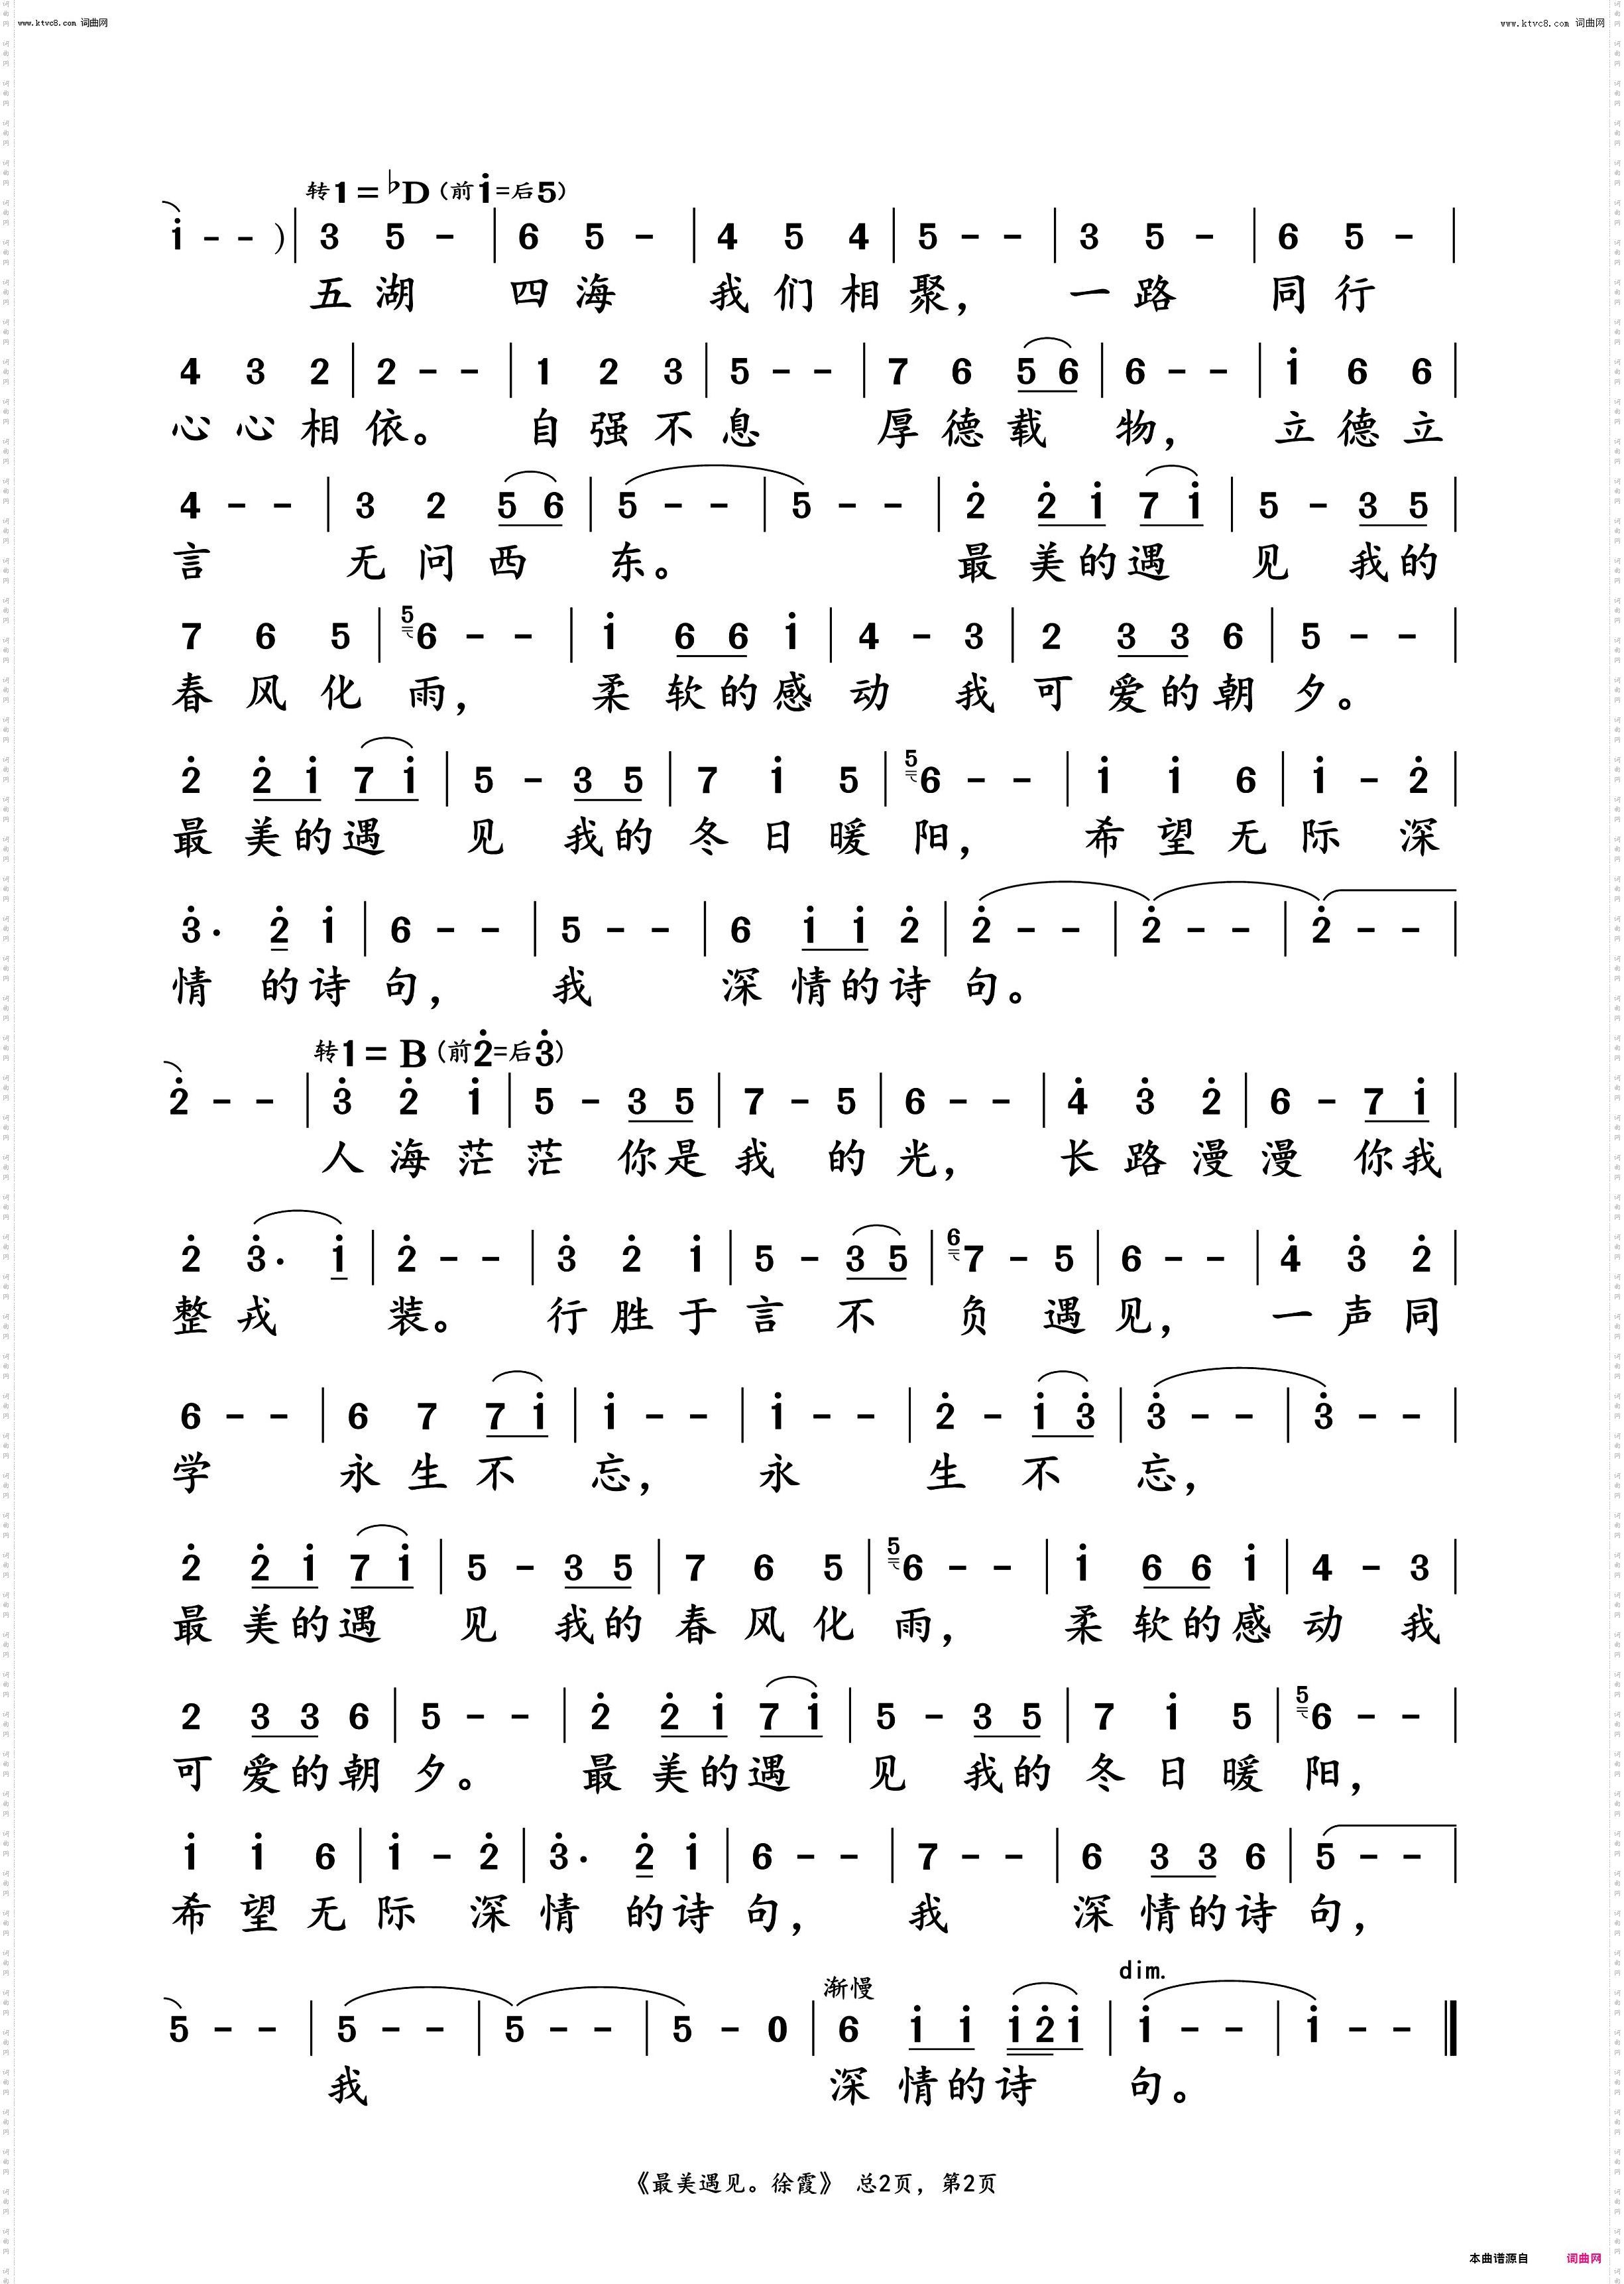 www.ktvc8.com 词曲网
www.ktvc8.com 词曲网
转1=♭D(前i̇=后5)
i̇ - - ) | 3 5 - | 6 5 - | 4 5 4 | 5 - - | 3 5 - | 6 5 - |
五湖 四海 我们相聚, 一路 同行
4 3 2 | 2 - - | 1 2 3 | 5 - - | 7 6 5 6 | 6 - - | i̇ 6 6 |
心心相依。 自强不息 厚德载 物, 立德立
4 - - | 3 2 5 6 | 5 - - | 5 - - | 2̇ 2̇ i̇ 7 i̇ | 5 - 3 5 |
言 无问西 东。 最美的遇 见 我的
7 6 5 | 5 6 - - | i̇ 6 6 i̇ | 4 - 3 | 2 3 3 6 | 5 - - |
春风化 雨, 柔软的感 动 我 可爱的朝 夕。
2̇ 2̇ i̇ 7 i̇ | 5 - 3 5 | 7 i̇ 5 | 5 6 - - | i̇ i̇ 6 | i̇ - 2̇ |
最美的遇 见 我的 冬日暖 阳, 希望无 际 深
3̇· 2̇ i̇ | 6 - - | 5 - - | 6 i̇ i̇ 2̇ | 2̇ - - | 2̇ - - | 2̇ - - |
情 的诗 句, 我 深情的诗 句。
转1=B(前2̇=后3̇)
2̇ - - | 3̇ 2̇ i̇ | 5 - 3 5 | 7 - 5 | 6 - - | 4̇ 3̇ 2̇ | 6 - 7 i̇ |
人海茫 茫 你是 我 的 光, 长路漫 漫 你我
2̇ 3̇· i̇ | 2̇ - - | 3̇ 2̇ i̇ | 5 - 3 5 | 6 7 - 5 | 6 - - | 4̇ 3̇ 2̇ |
整戎 装。 行胜于 言 不 负 遇 见, 一声同
6 - - | 6 7 7 i̇ | i̇ - - | i̇ - - | 2̇ - i̇ 3̇ | 3̇ - - | 3̇ - - |
学 永生不 忘, 永 生 不 忘,
2̇ 2̇ i̇ 7 i̇ | 5 - 3 5 | 7 6 5 | 5 6 - - | i̇ 6 6 i̇ | 4 - 3 |
最美的遇 见 我的 春风化 雨, 柔软的感 动 我
2 3 3 6 | 5 - - | 2̇ 2̇ i̇ 7 i̇ | 5 - 3 5 | 7 i̇ 5 | 5 6 - - |
可爱的朝 夕。 最美的遇 见 我的 冬日暖 阳,
i̇ i̇ 6 | i̇ - 2̇ | 3̇· 2̇ i̇ | 6 - - | 7 - - | 6 3 3 6 | 5 - - |
希望无 际 深 情 的诗 句, 我 深情的诗 句,
渐慢 dim.
5 - - | 5 - - | 5 - - | 5 - 0 | 6 i̇ i̇ i̇ 2̇ i̇ | i̇ - - | i̇ - - ‖
我 深情的诗 句。
《最美遇见。徐霞》 总2页, 第2页
本曲谱源自 词曲网